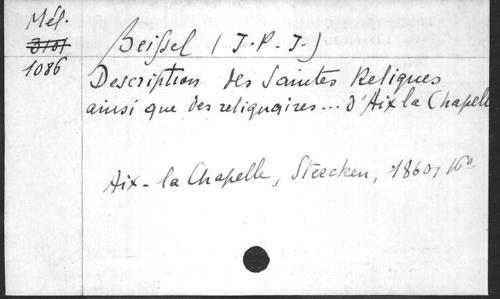 Mél.
3101
1086
Beissel (J. P. J.)
Description des Saintes Reliques
ainsi que des reliquaires... d'Aix la Chapelle
Aix-la Chapelle, Steecken, 1860, 16°